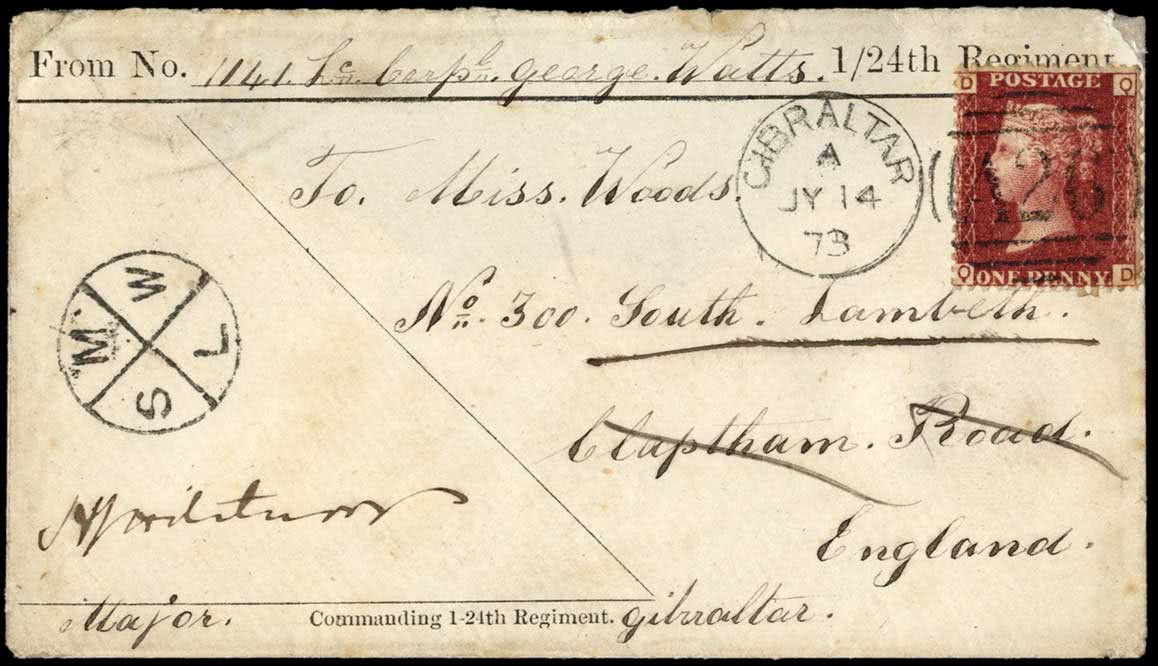 From No. 1141. Lce. Corpl. George. Watts. 1/24th Regiment
POSTAGE
D Q
GIBRALTAR
A
JY 14
73
A26
Q ONE PENNY D
To. Miss. Woods.
No. 300. South. Lambeth.
Claptham. Road.
England.
Gibraltar.
W
M L
S
Major.
Commanding 1-24th Regiment.